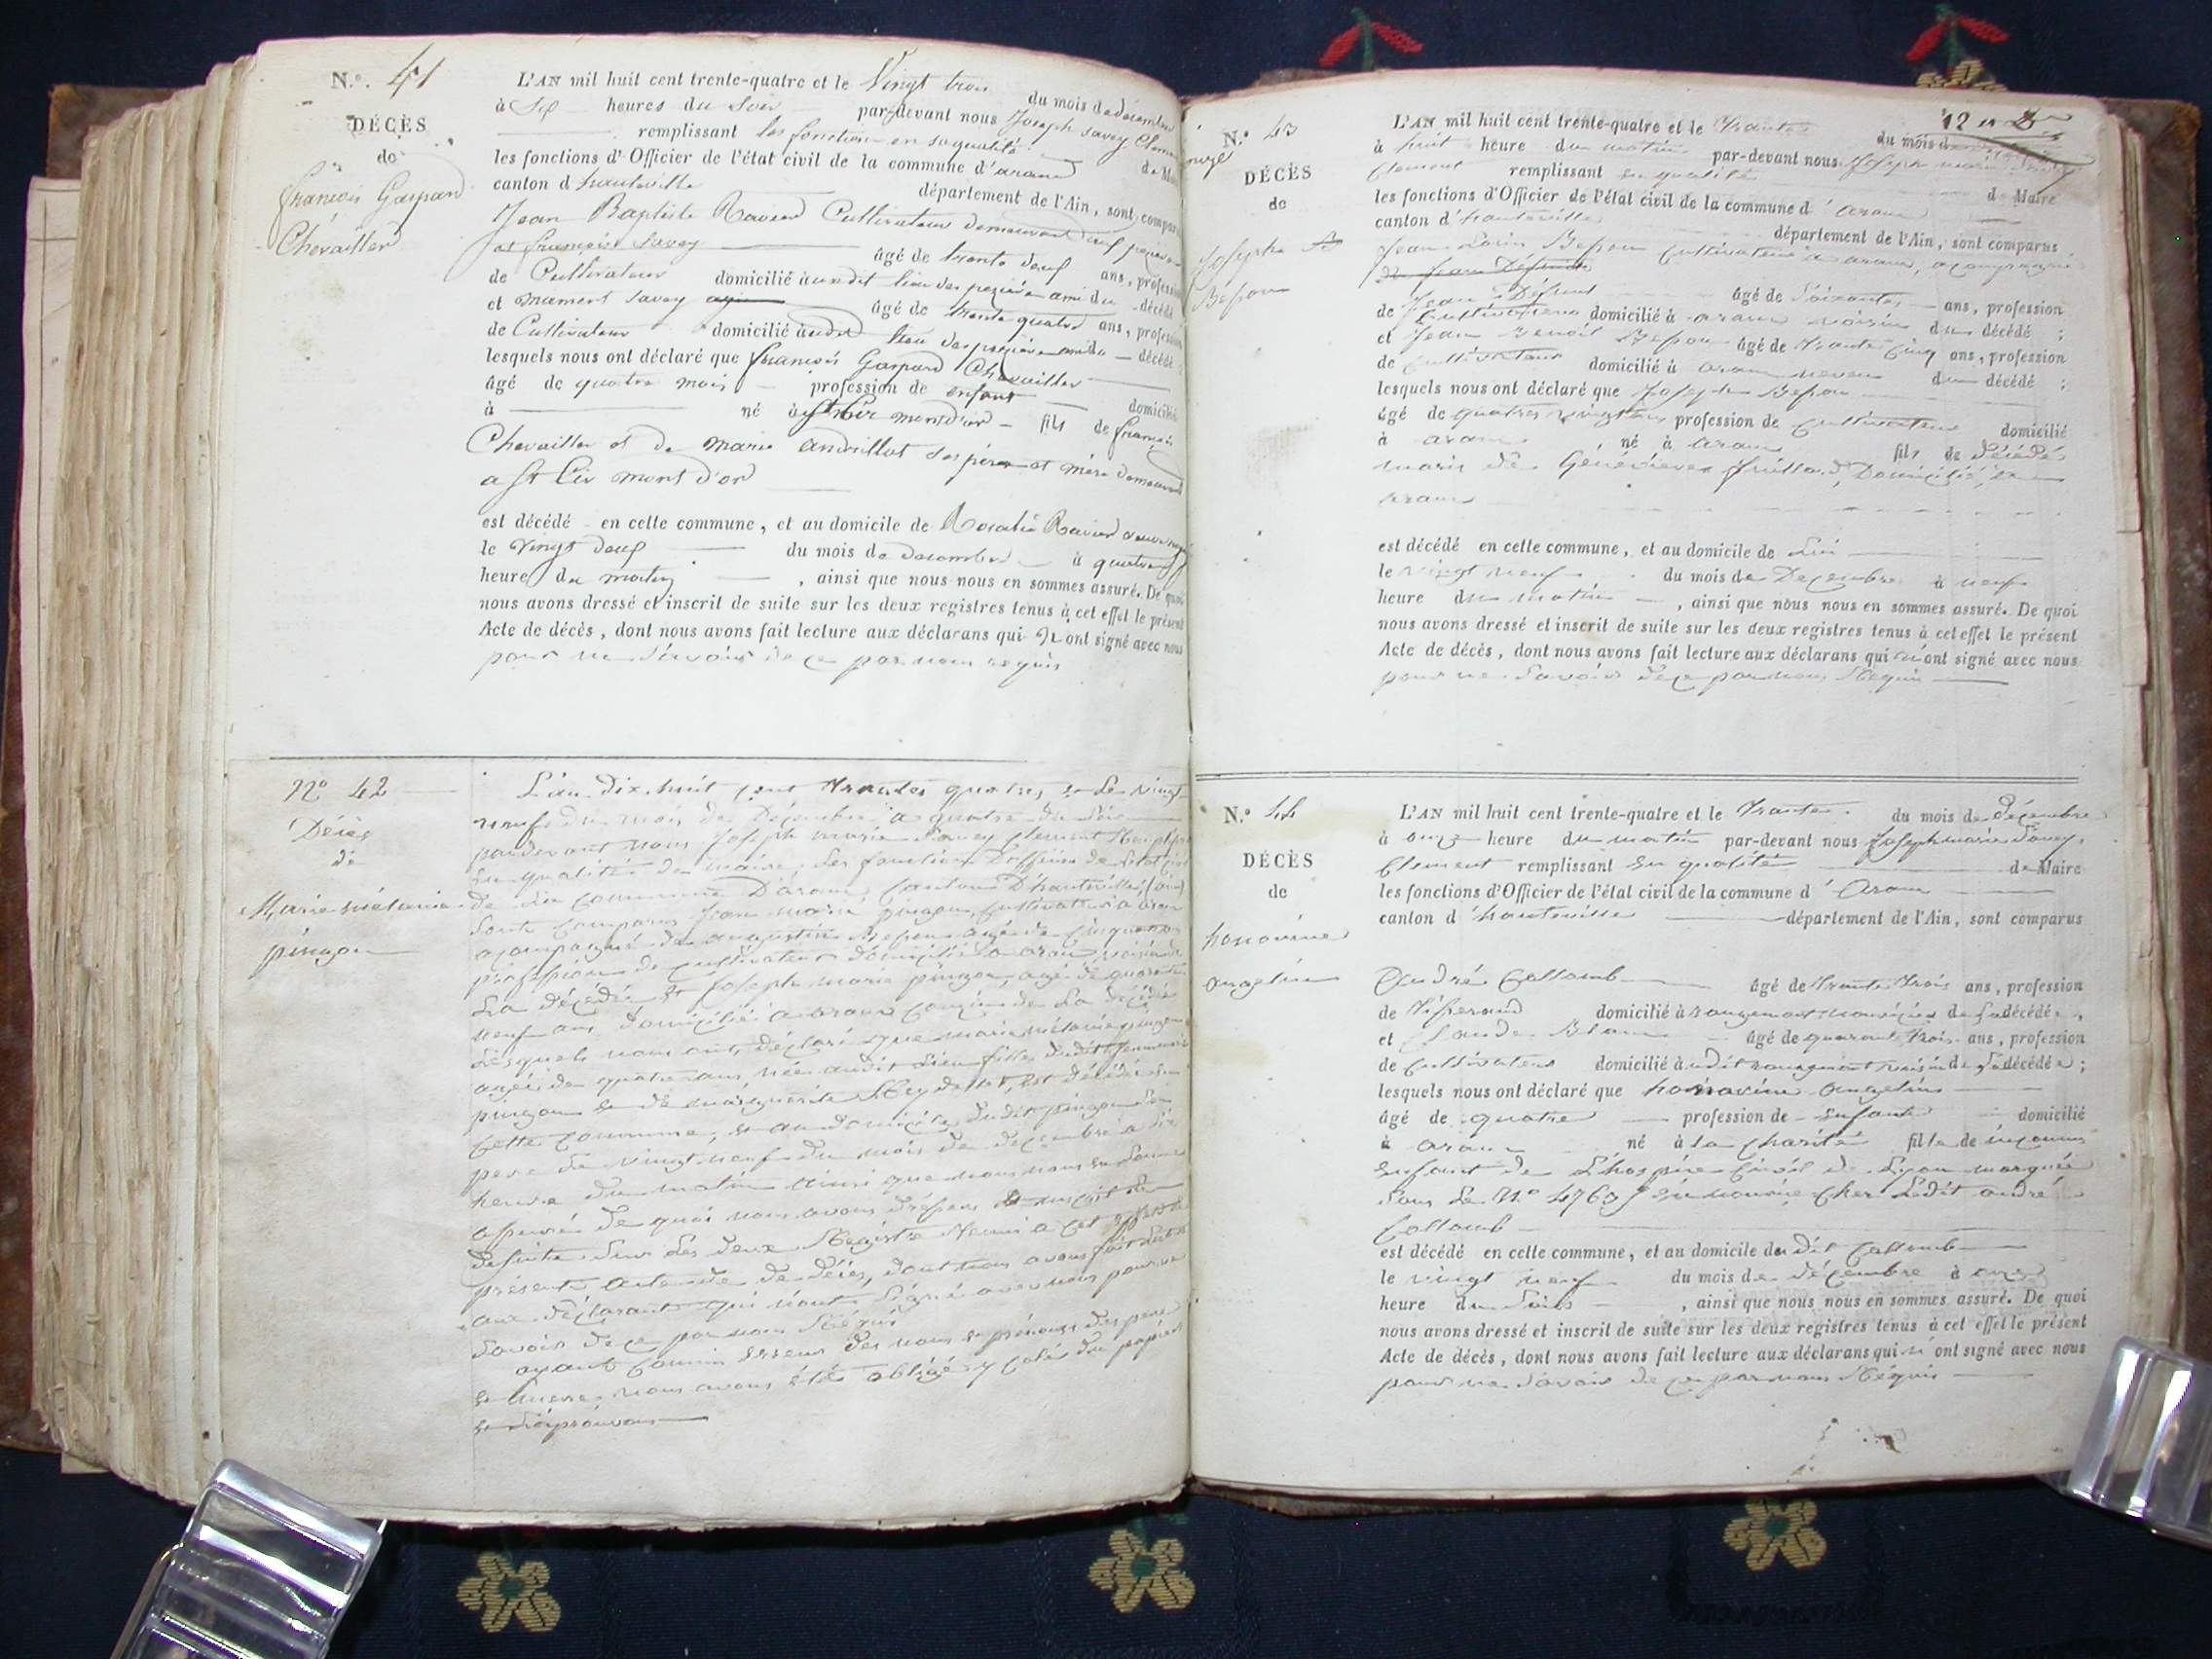 N.o 41
DÉCÈS
de
François Gaspard
Chevailler
L'AN mil huit cent trente-quatre et le Vingt trois du mois de décembre
à Six heures du Soir par-devant nous Joseph Savey Clement
remplissant les fonction en saqualité de Maire
les fonctions d'Officier de l'état civil de la commune d'aranc
canton d'hauteville département de l'Ain, sont comparus
Jean Baptiste Ravier Cultivateur demeurant
et françois Savey âgé de trente deux ans, profession
de Cultivateur domicilié audit lieu des pezières ami du décédé
et mament Savey âgé de trente quatre ans, profession
de Cultivateur domicilié audit lieu des pezières ami du décédé
lesquels nous ont déclaré que françois Gaspard Chevailler
âgé de quatre mois profession de enfant domicilié
à né à St Cir mont d'or fils de françois
Chevailler et de marie andrillat ses père et mère demeurant
a St Cir mont d'or
est décédé en cette commune, et au domicile de Rosalie Ravier
le Vingt deux du mois de decembre à quatre
heure du matin, ainsi que nous nous en sommes assuré. De quoi
nous avons dressé et inscrit de suite sur les deux registres tenus à cet effet le présent
Acte de décès, dont nous avons fait lecture aux déclarans qui n'ont signé avec nous
pour ne Savoir de ce par nous requis
No 42
Décès
de
Marie mélanie
pinzon
L'an dix huit cent trantes quatres et le vingt
neuf du mois de Décembre a quatre du Soir
pardevant nous Joseph marie Savey Clement Remplissant
en qualités de maire, les fonctions D'officier de l'état civil
de la commune D'aranc Canton D'hauteville (ain)
Sont Comparus Jean marie pinzon, Cultivateur a aranc
acompagné de augustin Bepon agé de Cinquante
profession de Cultivateur domicilié a aranc, voisin de
La décédée, et Joseph marie pinzon, agé de quarante
neuf ans domicilié a aranc Cousin de La décédée
Lesquels nous ont déclaré que marie mélanie pinzon
agée de quatre ans, née audit Lieu fille dudit Jean marie
pinzon et de marguerite Reydellet, est décédée en
Cette Commune, et au domicile dudit pinzon Son
pere Le vingt neuf du mois de decembre a dix
heure du matin ainsi que nous nous en Somme
assuré de quoi nous avons dressé et inscrit de
desuite Sur Les deux Régistre tenus a Cet effet le
présent acte de Décès, dont nous avons fait Lecture
aux déclarants qui n'ont Signé avec nous pour ne
Savoir de ce par nous Réquis
ayant Commis erreur des noms et prénoms des pere
et mere, nous avons été obligé y Coler du papier
et L'approuvons
N.o 43
DÉCÈS
de
Joseph
Bepon
12 et
L'AN mil huit cent trente-quatre et le trante du mois de
à huit heure du matin par-devant nous Joseph marie Savey
Clement remplissant en qualité de Maire
les fonctions d'Officier de l'état civil de la commune d'aranc
canton d'hauteville département de l'Ain, sont comparus
Jean Bepon Cultivateur a aranc, acompagné
de Jean
Jean âgé de Soixantes ans, profession
de Cultivateur domicilié à aranc voisin du décédé;
et Jean Benoit Bepon âgé de trante Cinq ans, profession
de Cultivateur domicilié à aranc neveu du décédé;
lesquels nous ont déclaré que Joseph Bepon
âgé de quatres vingts profession de Cultivateur domicilié
à aranc, né à aranc fils de décédé
marie de Généviève, Domicilié a
aranc
est décédé en cette commune, et au domicile de Lui
le vingt neuf du mois de Decembre à neuf
heure du matin, ainsi que nous nous en sommes assuré. De quoi
nous avons dressé et inscrit de suite sur les deux registres tenus à cet effet le présent
Acte de décès, dont nous avons fait lecture aux déclarans qui n'ont signé avec nous
pour ne Savoir de ce par nous Réquis
N.o 44
DÉCÈS
de
honorine
angelin
L'AN mil huit cent trente-quatre et le trante du mois de décembre
à onze heure du matin par-devant nous Joseph marie Savey
Clement remplissant en qualité de Maire
les fonctions d'Officier de l'état civil de la commune d'aranc
canton d'hauteville département de l'Ain, sont comparus
André Collomb âgé de trante trois ans, profession
de tisserand domicilié à rougemont nouricier de La décédé,
et Claude âgé de quarante trois ans, profession
de Cultivateur domicilié à udit rougemont voisin de La décédé;
lesquels nous ont déclaré que honorine angelin
âgé de quatre profession de enfant domicilié
à aranc né à la charité fille de inconnus
enfant de L'hospice Civil de Lyon marquée
Sous Le No en nourice cher Ledit andré
Collomb
est décédé en cette commune, et au domicile du dit Collomb
le vingt neuf du mois de décembre à onze
heure du Soir, ainsi que nous nous en sommes assuré. De quoi
nous avons dressé et inscrit de suite sur les deux registres tenus à cet effet le présent
Acte de décès, dont nous avons fait lecture aux déclarans qui n'ont signé avec nous
pour ne Savoir de ce par nous Réquis